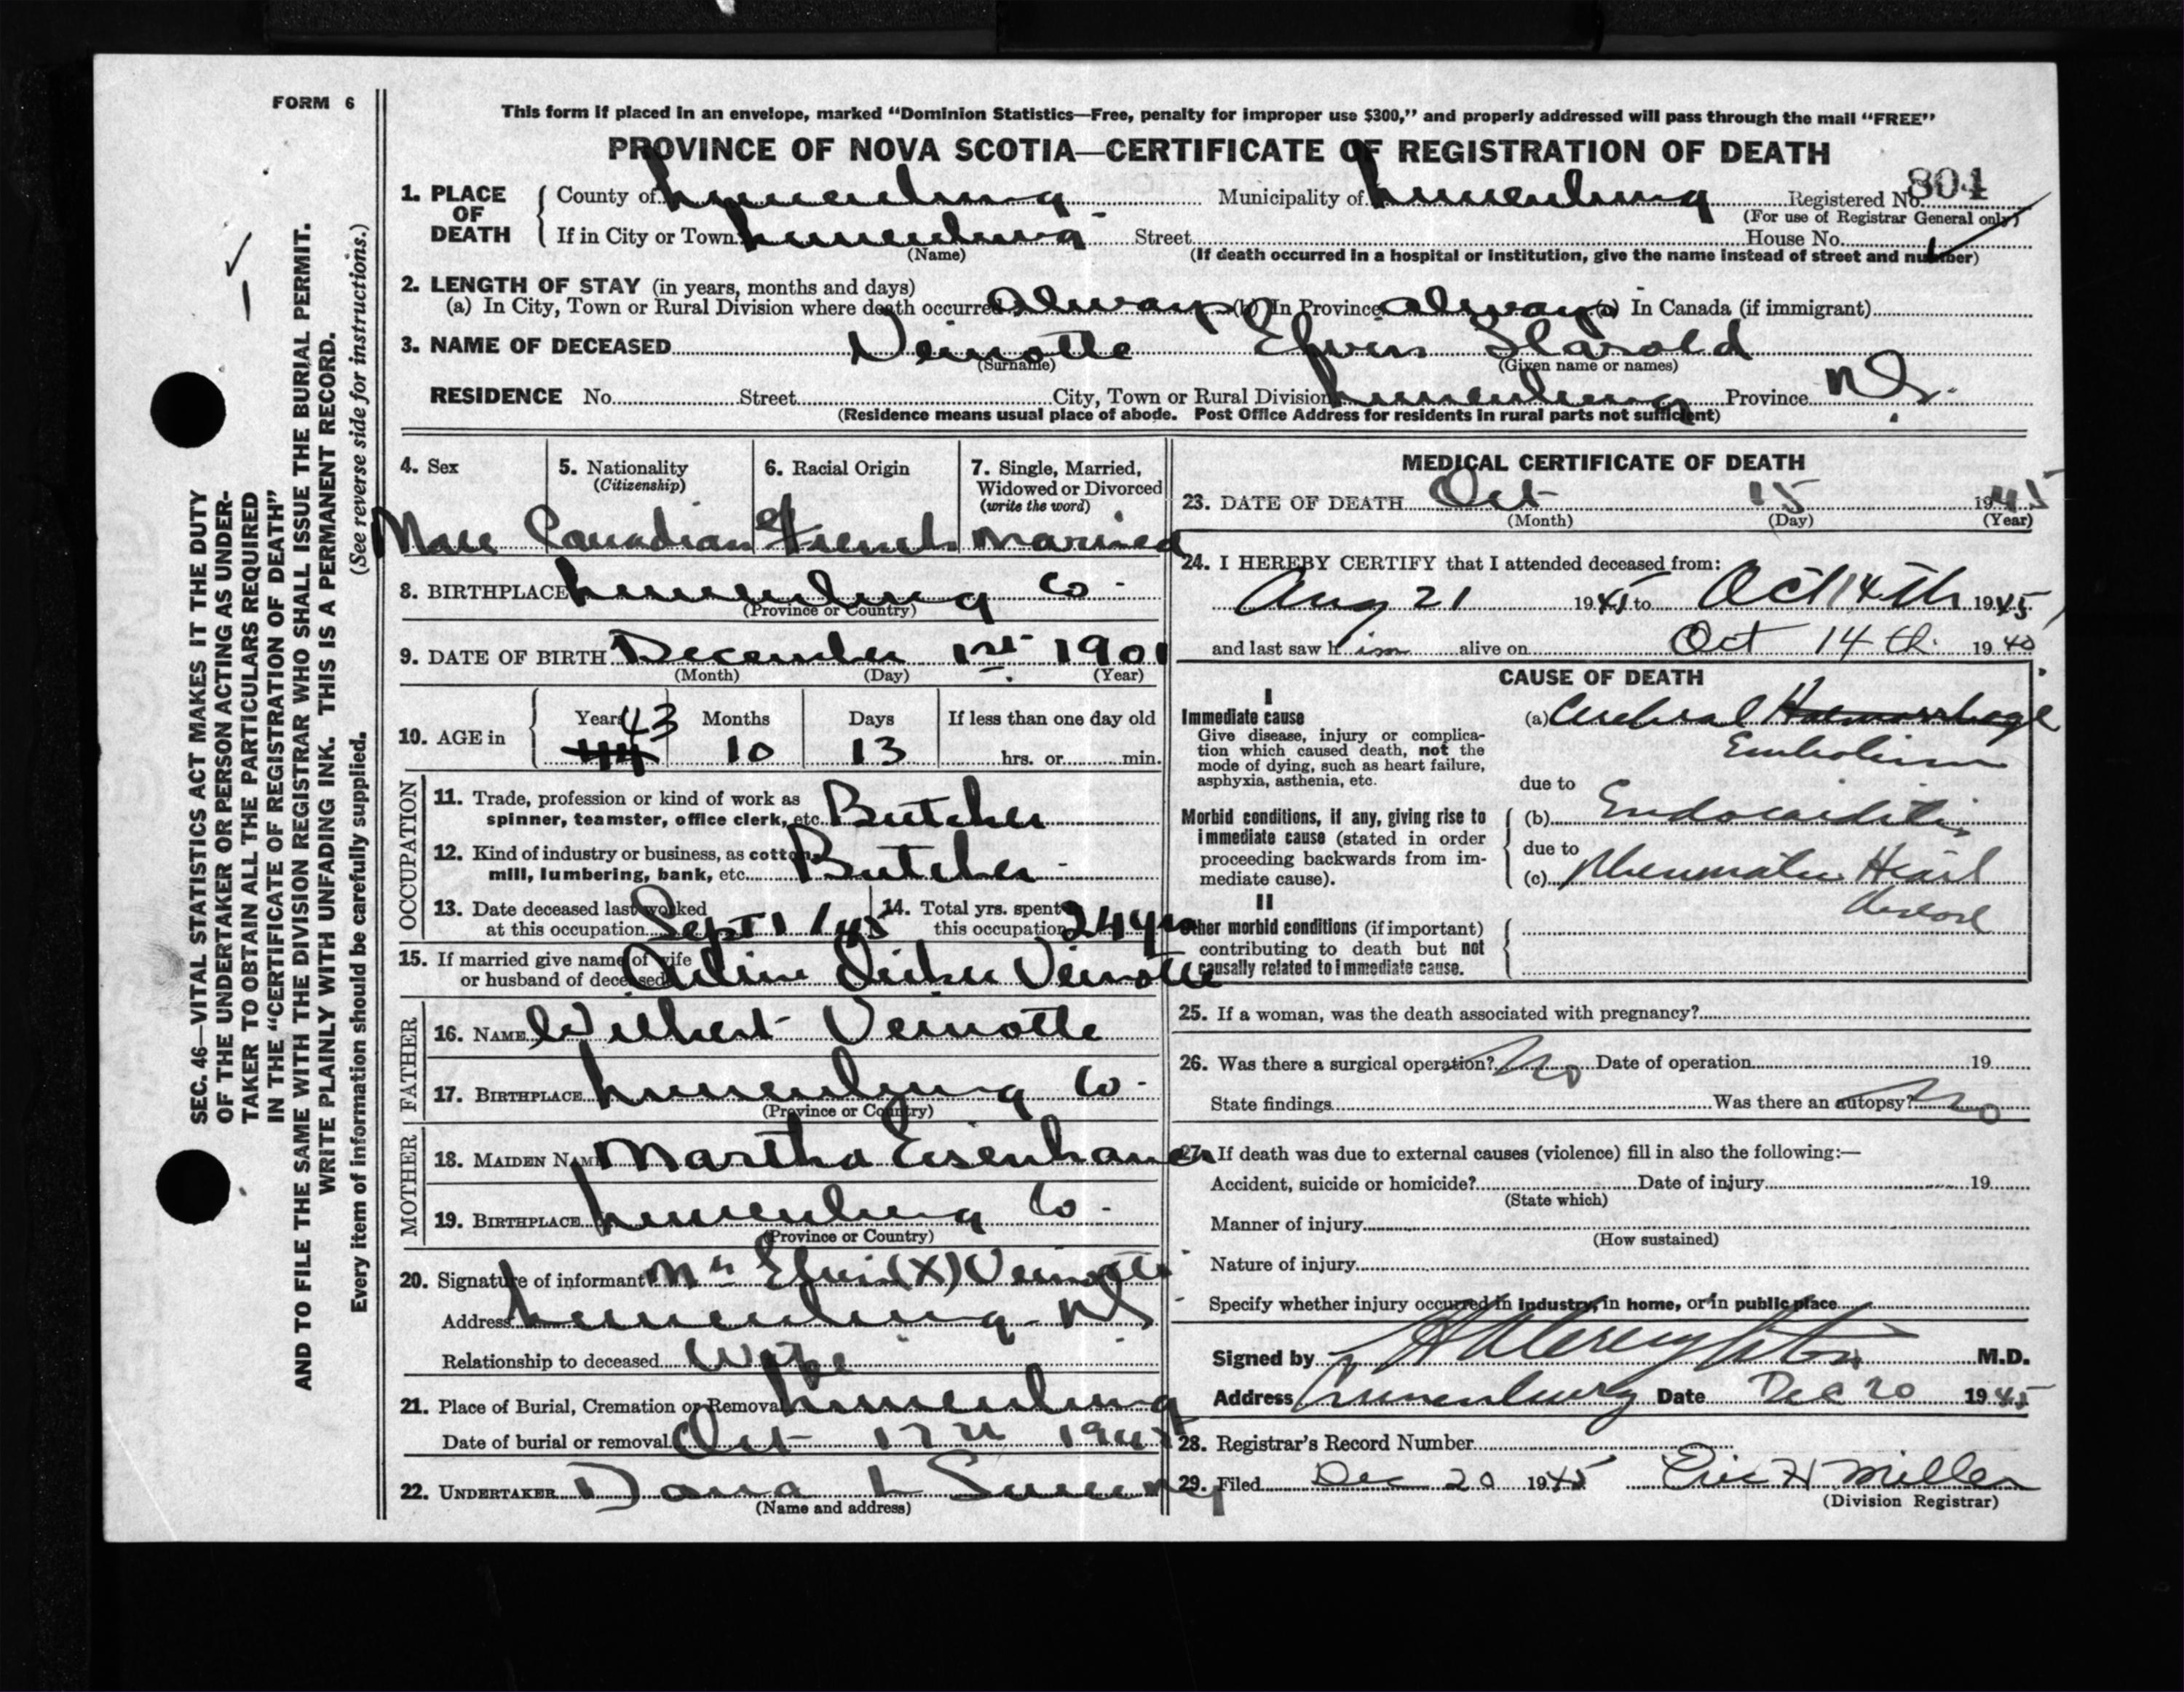 FORM 6
This form if placed in an envelope, marked "Dominion Statistics—Free, penalty for improper use $300," and properly addressed will pass through the mail "FREE"
PROVINCE OF NOVA SCOTIA—CERTIFICATE OF REGISTRATION OF DEATH
1. PLACE OF DEATH County of Lunenburg Municipality of Lunenburg Registered No. 804
(For use of Registrar General only)
If in City or Town Lunenburg Street House No.
(Name) (If death occurred in a hospital or institution, give the name instead of street and number)
2. LENGTH OF STAY (in years, months and days)
(a) In City, Town or Rural Division where death occurred always (b) In Province always (c) In Canada (if immigrant)
3. NAME OF DECEASED Veinotte Elvin Harold
(Surname) (Given name or names)
RESIDENCE No. Street City, Town or Rural Division Lunenburg Province N.S.
(Residence means usual place of abode. Post Office Address for residents in rural parts not sufficient)
4. Sex 5. Nationality (Citizenship) 6. Racial Origin 7. Single, Married, Widowed or Divorced (write the word)
Male Canadian French Married
8. BIRTHPLACE Lunenburg Co
(Province or Country)
9. DATE OF BIRTH December 1st 1901
(Month) (Day) (Year)
10. AGE in Years Months Days If less than one day old
44 43 10 13 hrs. or min.
OCCUPATION
11. Trade, profession or kind of work as
spinner, teamster, office clerk, etc. Butcher
12. Kind of industry or business, as cotton
mill, lumbering, bank, etc. Butcher
13. Date deceased last worked at this occupation Sept 1/45 14. Total yrs. spent this occupation 24 yrs
15. If married give name of wife
or husband of deceased Veinotte
FATHER
16. NAME Wilbert Veinotte
17. BIRTHPLACE Lunenburg Co.
(Province or Country)
MOTHER
18. MAIDEN NAME Martha Eisenhauer
19. BIRTHPLACE Lunenburg Co.
(Province or Country)
20. Signature of informant Mrs Elvin (X) Veinotte
Address Lunenburg N.S.
Relationship to deceased Wife
21. Place of Burial, Cremation or Removal Lunenburg
Date of burial or removal Oct 17th 1945
22. UNDERTAKER Dana L Sweeny
(Name and address)
MEDICAL CERTIFICATE OF DEATH
23. DATE OF DEATH Oct 15 1945
(Month) (Day) (Year)
24. I HEREBY CERTIFY that I attended deceased from:
Aug 21 1945 to Oct 14th 1945
and last saw him alive on Oct 14th 1945
CAUSE OF DEATH
I
Immediate cause (a) Cerebral Haemorrhage
Embolism
Give disease, injury or complication which caused death, not the mode of dying, such as heart failure, asphyxia, asthenia, etc.
due to
Morbid conditions, if any, giving rise to immediate cause (stated in order proceeding backwards from immediate cause).
(b) Endocarditis
due to
(c) Rheumatic Heart
disease
II
Other morbid conditions (if important) contributing to death but not causally related to immediate cause.
25. If a woman, was the death associated with pregnancy?
26. Was there a surgical operation? No Date of operation 19
State findings Was there an autopsy? No
27. If death was due to external causes (violence) fill in also the following:—
Accident, suicide or homicide? Date of injury 19
(State which)
Manner of injury
(How sustained)
Nature of injury
Specify whether injury occurred in industry, in home, or in public place
Signed by M.D.
Address Lunenburg Date Dec 20 1945
28. Registrar's Record Number
29. Filed Dec 20 1945 Eric H Miller
(Division Registrar)
SEC. 46—VITAL STATISTICS ACT MAKES IT THE DUTY
OF THE UNDERTAKER OR PERSON ACTING AS UNDER-
TAKER TO OBTAIN ALL THE PARTICULARS REQUIRED
IN THE "CERTIFICATE OF REGISTRATION OF DEATH"
AND TO FILE THE SAME WITH THE DIVISION REGISTRAR WHO SHALL ISSUE THE BURIAL PERMIT.
WRITE PLAINLY WITH UNFADING INK. THIS IS A PERMANENT RECORD.
Every item of information should be carefully supplied. (See reverse side for instructions.)